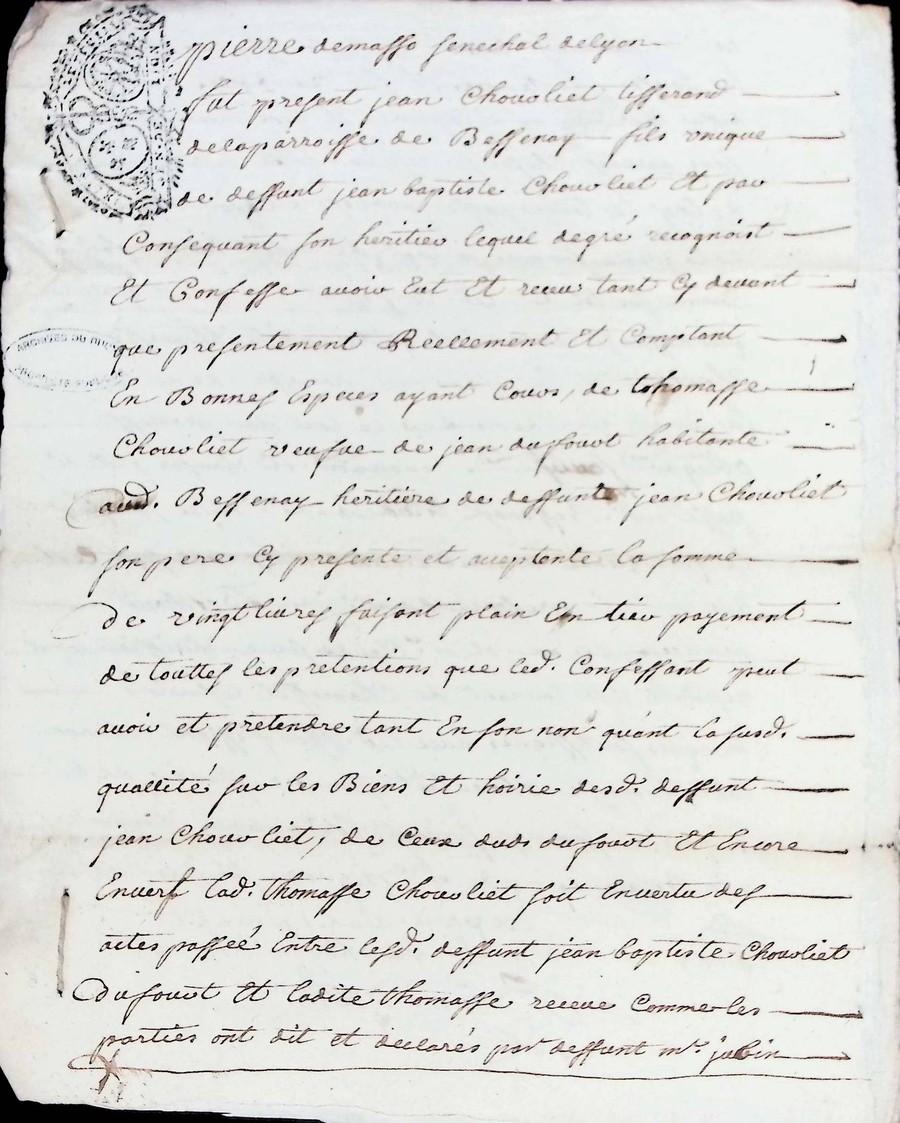 pierre demasso senechal de lyon
fut present jean Chouvliet tisserand
de la parroisse de Bessenay fils unique
de deffunt jean baptiste Chouvliet Et par
Consequant son heritier lequel de gré recognoist
Et Confesse avoir Eut Et receu tant Cy devant
que presentement Reellement Et Comptant
En Bonnes Especes ayant Cours, de thomasse
Chouvliet veufve de jean dufourt habitante
aud. Bessenay heritiere de deffunt jean Chouvliet
son pere Cy presente et aceptante la somme
De vingt livres faisant plain Entier payement
de touttes les pretentions que led. Confessant peut
avoir et pretendre tant En son non qu'ant la susd.
quallité sur les Biens Et hoirie desd. deffunt
jean Chouvliet, de Ceux dud. dufourt Et Encore
Envers lad. thomasse Chouvliet soit En vertu des
actes passeé Entre lesd. deffunt jean baptiste Chouvliet
Dufourt Et ladite thomasse receue Comme les
parties ont dit et declarés par deffunt mr. jubin